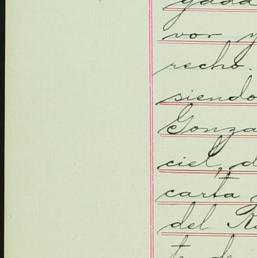 vor y
recho.
siendo
Gonza
ciel, d
carta
del R